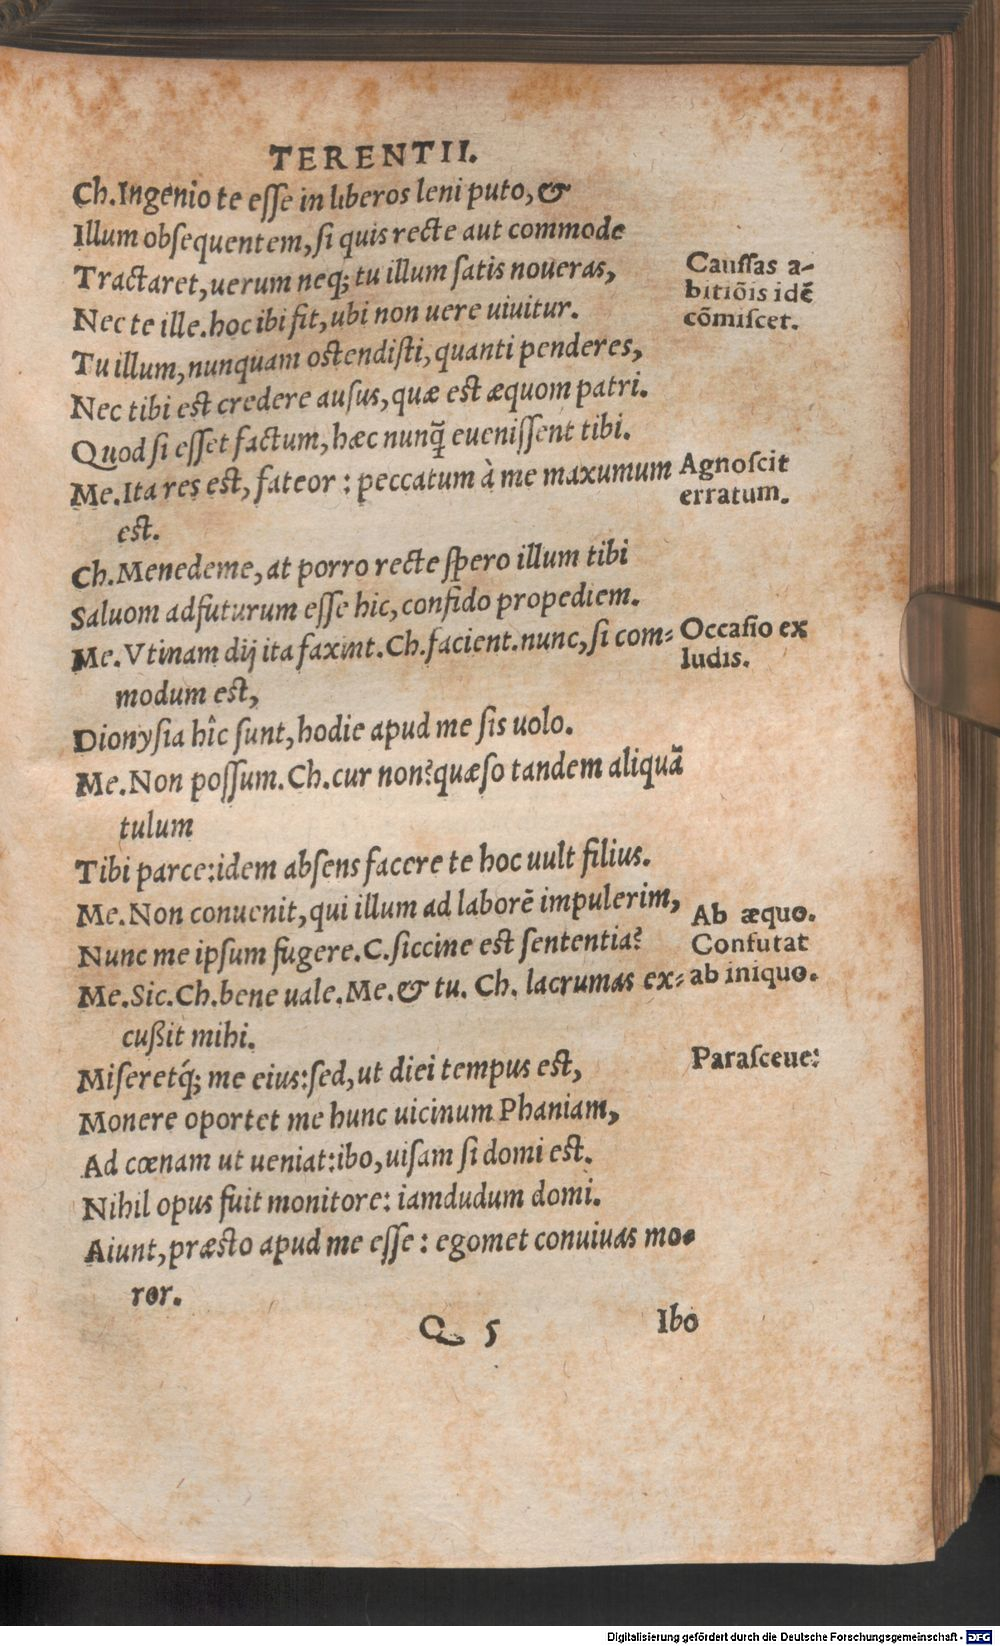 TERENTII.
Ch. Ingenio te eſſe in liberos leni puto, &
Illum obſequentem, ſi quis recte aut commode
Tractaret, uerum neq; tu illum ſatis noueras,
Nec te ille. hoc ibi fit, ubi non uere uiuitur.
Tu illum, nunquam oſtendiſti, quanti penderes,
Nec tibi eſt credere auſus, quæ eſt æquom patri.
Quod ſi eſſet factum, hæc nunq̃ eueniſſent tibi.
Me. Ita res eſt, fateor : peccatum à me maxumum
eſt.
Ch. Menedeme, at porro recte ſpero illum tibi
Saluom adfuturum eſſe hic, confido propediem.
Me. Vtinam dij ita faxint. Ch. facient. nunc, ſi com=
modum eſt,
Dionyſia hîc ſunt, hodie apud me ſis uolo.
Me. Non poſſum. Ch. cur non? quæſo tandem aliquã
tulum
Tibi parce: idem abſens facere te hoc uult filius.
Me. Non conuenit, qui illum ad laborē impulerim,
Nunc me ipſum fugere. C. ſiccine eſt ſententia?
Me. Sic. Ch. bene uale. Me. & tu. Ch. lacrumas ex=
cußit mihi.
Miseretq́; me eius: ſed, ut diei tempus eſt,
Monere oportet me hunc uicinum Phaniam,
Ad cœnam ut ueniat: ibo, uiſam ſi domi eſt.
Nihil opus fuit monitore: iamdudum domi.
Aiunt, præſto apud me eſſe : egomet conuiuas mo=
ror.
Q 5
Ibo
Cauſſas a-
bitiōis idē
cōmiſcet.
Agnoſcit
erratum.
Occaſio ex
ludis.
Ab æquo.
Confutat
ab iniquo.
Paraſceue:
Digitalisierung gefördert durch die Deutsche Forschungsgemeinschaft - DFG